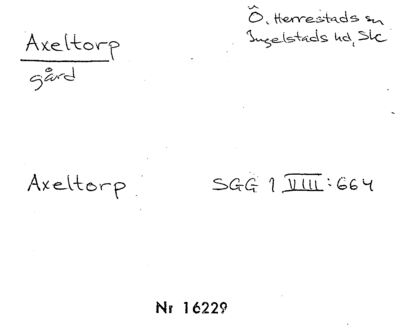 Axeltorp
gård
Ö. Herrestads sn
Ingelstads hd, Skc
Axeltorp SGG 1 VIII:664
Nr 16229